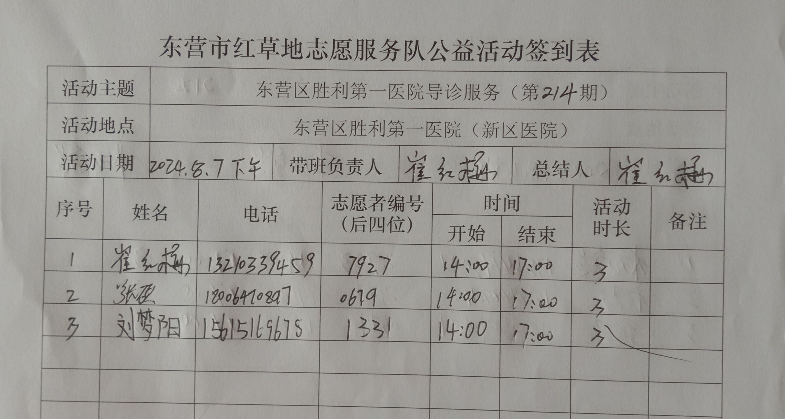 东营市红草地志愿服务队公益活动签到表
活动主题 东营区胜利第一医院导诊服务（第214期）
活动地点 东营区胜利第一医院（新区医院）
活动日期 2024.8.7下午 带班负责人 崔红梅 总结人 崔红梅
序号 姓名 电话 志愿者编号（后四位） 时间 开始 结束 活动时长 备注
1 崔红梅 13210339459 7927 14:00 17:00 3
2 0679 14:00 17:00 3
3 刘梦阳 15615169678 1331 14:00 17:00 3